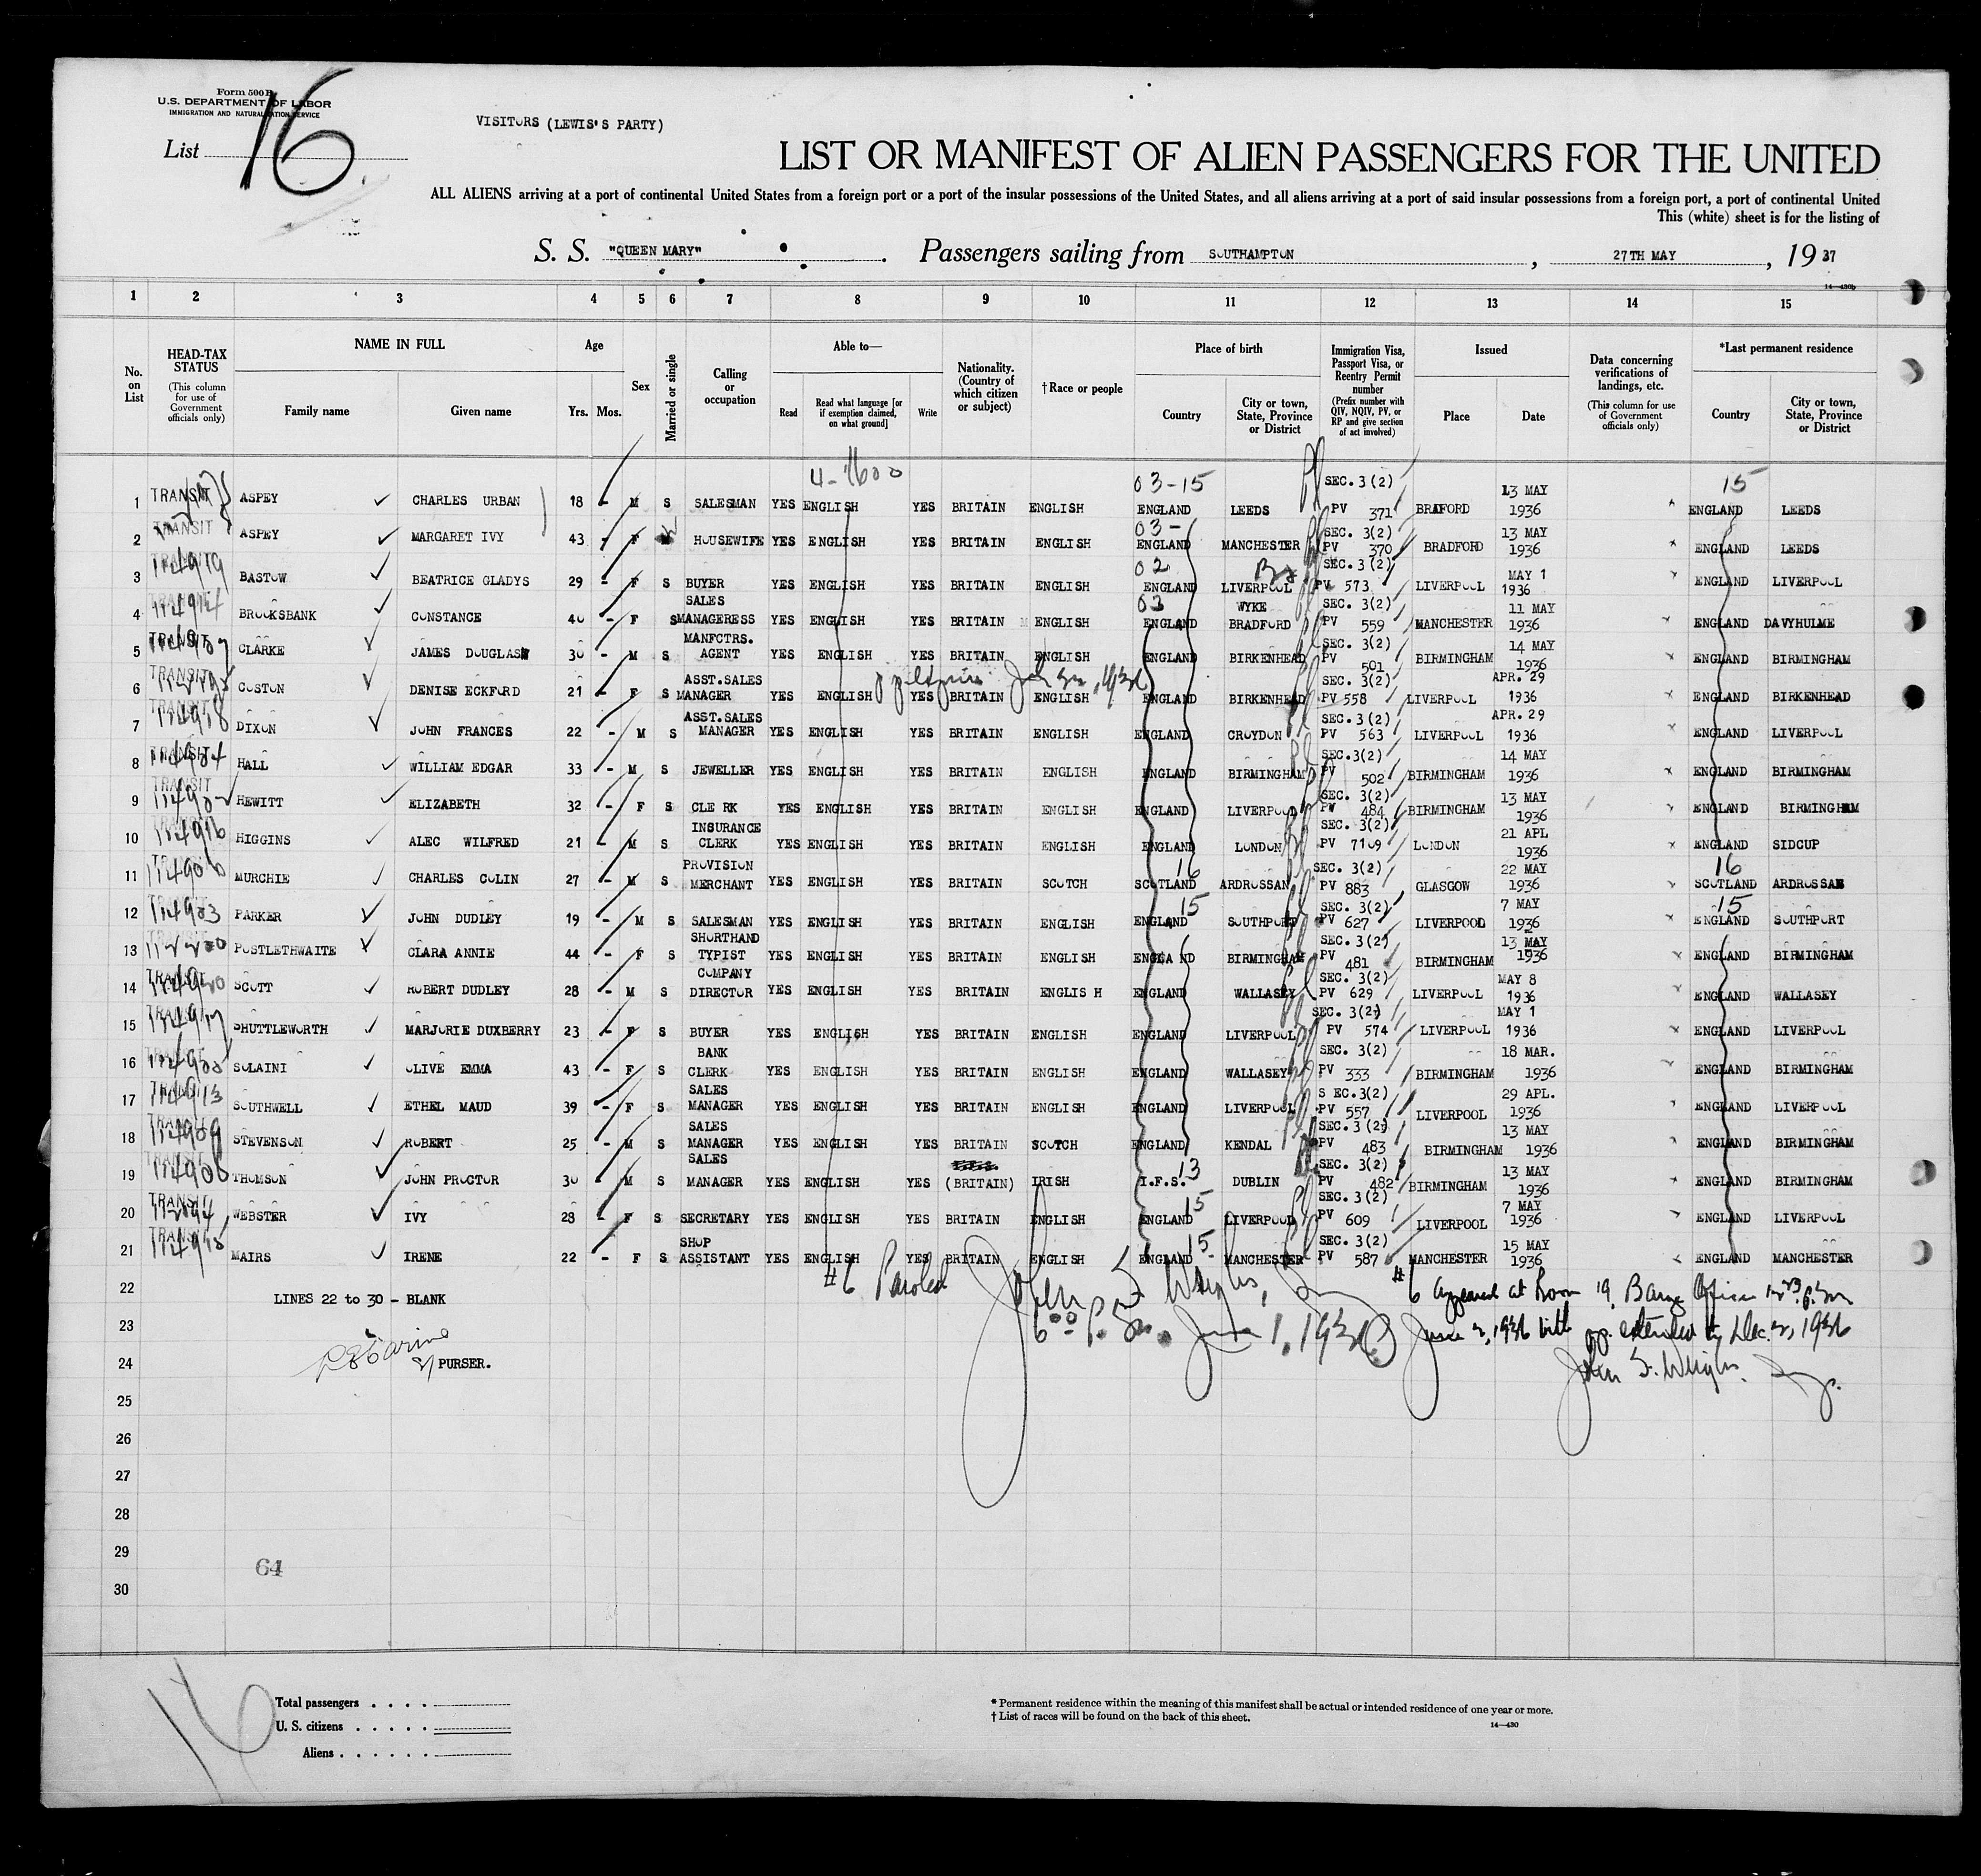 Form 500 B
U.S. DEPARTMENT OF LABOR
IMMIGRATION AND NATURALIZATION SERVICE
List 16
VISITORS (LEWIS'S PARTY)
LIST OR MANIFEST OF ALIEN PASSENGERS FOR THE UNITED
ALL ALIENS arriving at a port of continental United States from a foreign port or a port of the insular possessions of the United States, and all aliens arriving at a port of said insular possessions from a foreign port, a port of continental United
This (white) sheet is for the listing of
S. S. "QUEEN MARY" . Passengers sailing from SOUTHAMPTON , 27TH MAY , 19 37
14—430b
1 2 3 4 5 6 7 8 9 10 11 12 13 14 15
No. on List
HEAD-TAX STATUS (This column for use of Government officials only)
NAME IN FULL Family name Given name
Age Yrs. Mos.
Sex
Married or single
Calling or occupation
Able to— Read Read what language [or if exemption claimed, on what ground] Write
Nationality. (Country of which citizen or subject)
† Race or people
Place of birth Country City or town, State, Province or District
Immigration Visa, Passport Visa, or Reentry Permit number (Prefix number with QIV, NQIV, PV, or RP and give section of act involved)
Issued Place Date
Data concerning verifications of landings, etc. (This column for use of Government officials only)
*Last permanent residence Country City or town, State, Province or District
4-1600 03-15 15
1 TRANSIT ASPEY CHARLES URBAN 18 - M S SALESMAN YES ENGLISH YES BRITAIN ENGLISH ENGLAND LEEDS SEC. 3(2) PV 371 BRADFORD 13 MAY 1936 ENGLAND LEEDS
2 TRANSIT ASPEY MARGARET IVY 43 - F HOUSEWIFE YES ENGLISH YES BRITAIN ENGLISH 03- ENGLAND MANCHESTER SEC. 3(2) PV 370 BRADFORD 13 MAY 1936 ENGLAND LEEDS
3 TRANSIT BASTOW BEATRICE GLADYS 29 - F S BUYER YES ENGLISH YES BRITAIN ENGLISH 02 ENGLAND LIVERPOOL SEC. 3(2) PV 573 LIVERPOOL MAY 1 1936 ENGLAND LIVERPOOL
4 TRANSIT BROOKSBANK CONSTANCE 40 - F S SALES MANAGERESS YES ENGLISH YES BRITAIN ENGLISH 03 ENGLAND WYKE BRADFORD SEC. 3(2) PV 559 MANCHESTER 11 MAY 1936 ENGLAND DAVYHULME
5 TRANSIT CLARKE JAMES DOUGLAS 30 - M S MANFCTRS. AGENT YES ENGLISH YES BRITAIN ENGLISH ENGLAND BIRKENHEAD SEC. 3(2) PV 501 BIRMINGHAM 14 MAY 1936 ENGLAND BIRMINGHAM
6 TRANSIT COSTON DENISE ECKFORD 21 - F S ASST. SALES MANAGER YES ENGLISH YES BRITAIN ENGLISH ENGLAND BIRKENHEAD SEC. 3(2) PV 558 LIVERPOOL APR. 29 1936 ENGLAND BIRKENHEAD
7 TRANSIT DIXON JOHN FRANCES 22 - M S ASST. SALES MANAGER YES ENGLISH YES BRITAIN ENGLISH ENGLAND CROYDON SEC. 3(2) PV 563 LIVERPOOL APR. 29 1936 ENGLAND LIVERPOOL
8 TRANSIT HALL WILLIAM EDGAR 33 - M S JEWELLER YES ENGLISH YES BRITAIN ENGLISH ENGLAND BIRMINGHAM SEC. 3(2) PV 502 BIRMINGHAM 14 MAY 1936 ENGLAND BIRMINGHAM
9 TRANSIT HEWITT ELIZABETH 32 - F S CLERK YES ENGLISH YES BRITAIN ENGLISH ENGLAND LIVERPOOL SEC. 3(2) PV 484 BIRMINGHAM 13 MAY 1936 ENGLAND BIRMINGHAM
10 HIGGINS ALEC WILFRED 21 - M S INSURANCE CLERK YES ENGLISH YES BRITAIN ENGLISH ENGLAND LONDON SEC. 3(2) PV 7109 LONDON 21 APL 1936 ENGLAND SIDCUP
11 MURCHIE CHARLES COLIN 27 - M S PROVISION MERCHANT YES ENGLISH YES BRITAIN SCOTCH 16 SCOTLAND ARDROSSAN SEC. 3(2) PV 883 GLASGOW 22 MAY 1936 16 SCOTLAND ARDROSSAN
12 PARKER JOHN DUDLEY 19 - M S SALESMAN YES ENGLISH YES BRITAIN ENGLISH 15 ENGLAND SOUTHPORT SEC. 3(2) PV 627 LIVERPOOL 7 MAY 1936 15 ENGLAND SOUTHPORT
13 POSTLETHWAITE CLARA ANNIE 44 - F S SHORTHAND TYPIST YES ENGLISH YES BRITAIN ENGLISH ENGLAND BIRMINGHAM SEC. 3(2) PV 481 BIRMINGHAM 13 MAY 1936 ENGLAND BIRMINGHAM
14 TRANSIT SCOTT ROBERT DUDLEY 28 - M S COMPANY DIRECTOR YES ENGLISH YES BRITAIN ENGLIS H ENGLAND WALLASEY SEC. 3(2) PV 629 LIVERPOOL MAY 8 1936 ENGLAND WALLASEY
15 TRANSIT SHUTTLEWORTH MARJORIE DUXBERRY 23 - F S BUYER YES ENGLISH YES BRITAIN ENGLISH ENGLAND LIVERPOOL SEC. 3(2) PV 574 LIVERPOOL MAY 1 1936 ENGLAND LIVERPOOL
16 TRANSIT SOLAINI OLIVE EMMA 43 - F S BANK CLERK YES ENGLISH YES BRITAIN ENGLISH ENGLAND WALLASEY SEC. 3(2) PV 333 BIRMINGHAM 18 MAR. 1936 ENGLAND BIRMINGHAM
17 TRANSIT SOUTHWELL ETHEL MAUD 39 - F S SALES MANAGER YES ENGLISH YES BRITAIN ENGLISH ENGLAND LIVERPOOL S EC.3(2) PV 557 LIVERPOOL 29 APL. 1936 ENGLAND LIVERPOOL
18 TRANSIT STEVENSON ROBERT 25 - M S SALES MANAGER YES ENGLISH YES BRITAIN SCOTCH ENGLAND KENDAL SEC. 3(2) PV 483 BIRMINGHAM 13 MAY 1936 ENGLAND BIRMINGHAM
19 TRANSIT THOMSON JOHN PROCTOR 30 - M S SALES MANAGER YES ENGLISH YES (BRITAIN) IRISH I.F.S. 13 DUBLIN SEC. 3(2) PV 482 BIRMINGHAM 13 MAY 1936 ENGLAND BIRMINGHAM
20 TRANSIT WEBSTER IVY 28 - F S SECRETARY YES ENGLISH YES BRITAIN ENGLISH 15 ENGLAND LIVERPOOL SEC. 3(2) PV 609 LIVERPOOL 7 MAY 1936 ENGLAND LIVERPOOL
21 TRANSIT MAIRS IRENE 22 - F S SHOP ASSISTANT YES ENGLISH YES BRITAIN ENGLISH 15 ENGLAND MANCHESTER SEC. 3(2) PV 587 MANCHESTER 15 MAY 1936 ENGLAND MANCHESTER
22 LINES 22 to 30 - BLANK #6 Paroled #6 appeared at Room 19, Barge Office
23 6:00 p.m. June 1, 1936 June 2, 1936 extended to Dec. 2, 1936
24 PURSER.
25
26
27
28
29
64
30
16
Total passengers
U. S. citizens
Aliens
* Permanent residence within the meaning of this manifest shall be actual or intended residence of one year or more.
† List of races will be found on the back of this sheet.
14—430